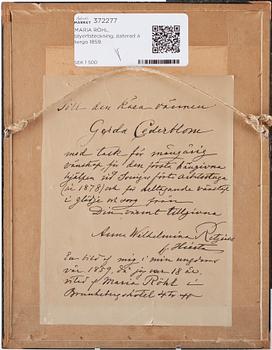 MARKET
372277
MARIA RÖHL,
blyertsteckning, daterad å
tergo 1859.
SEK 1 500
Till den kära vännen
Gerda Cederblom
med tack för mångårig
vänskap för den första hängivna
hjelpen vid Sveriges första arbetsstuga
(år 1878) och för deltagande vänskap
i glädje och sorg från
Din varmt tillgivna
Anna Wilhelmina Retzius
f. Hierta
En bild af mig i min ungdoms
vår 1859, då jag var 18 år,
ritad af Maria Röhl i
Brunkebergshotel